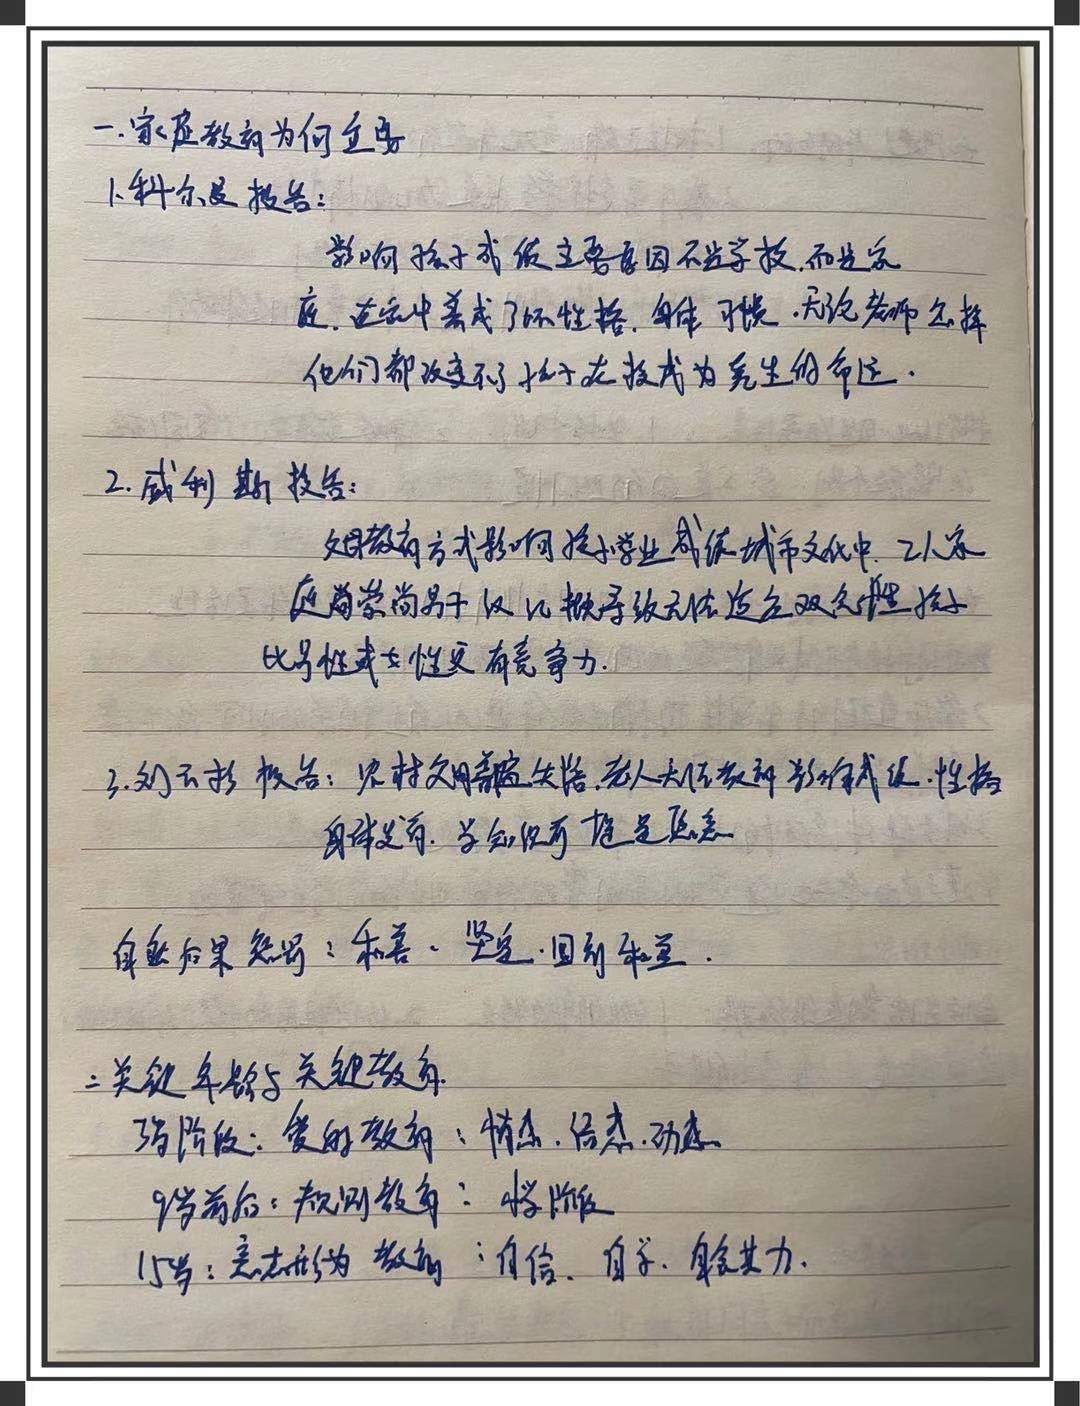 一.家庭教育为何重要
1.科尔曼报告:
影响孩子成绩主要原因不是学校.而是家
庭.在家中养成了坏性格.身体 习惯.无论老师怎样
他们都改变不了孩子在校成为差生的命运.
2.威利斯报告:
父母教育方式影响孩子学业成绩城市文化中.工人家
庭崇尚男子汉 导致无法适应 双 性孩子
比男性或女性更有竞争力.
3.刘云杉报告:农村父母 失踪.老人无法教育影响成绩.性格
身体发育.学 堪 忧
自然后果惩罚:和善、坚定.回到
二关键年龄与关键教育.
3岁阶段:爱的教育:情态.语态.动态
9岁前后:规则教育:小学阶段
15岁:意志行为教育:自信.自学.自食其力.